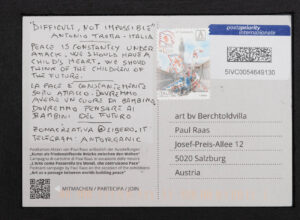 "DIFFICULT, NOT IMPOSSIBLE"
ANTONIO TROTTA - ITALIA
PEACE IS CONSTANTLY UNDER
ATTACK, WE SHOULD HAVE A
CHILD'S HEART, WE SHOULD
THINK OF THE CHILDREN OF
THE FUTURE.
LA PACE È COSTANTEMENTE
SOTTO ATTACCO. DOVREMMO
AVERE UN CUORE DI BAMBINO
DOVREMMO PENSARE AI
BAMBINI DEL FUTURO
TELEGRAM: ANTORGANIC
MITMACHEN / PARTECIPA / JOIN
postpriority
internazionale
5IVC0054649130
art bv Berchtoldvilla
Paul Raas
Josef-Preis-Allee 12
5020 Salzburg
Austria